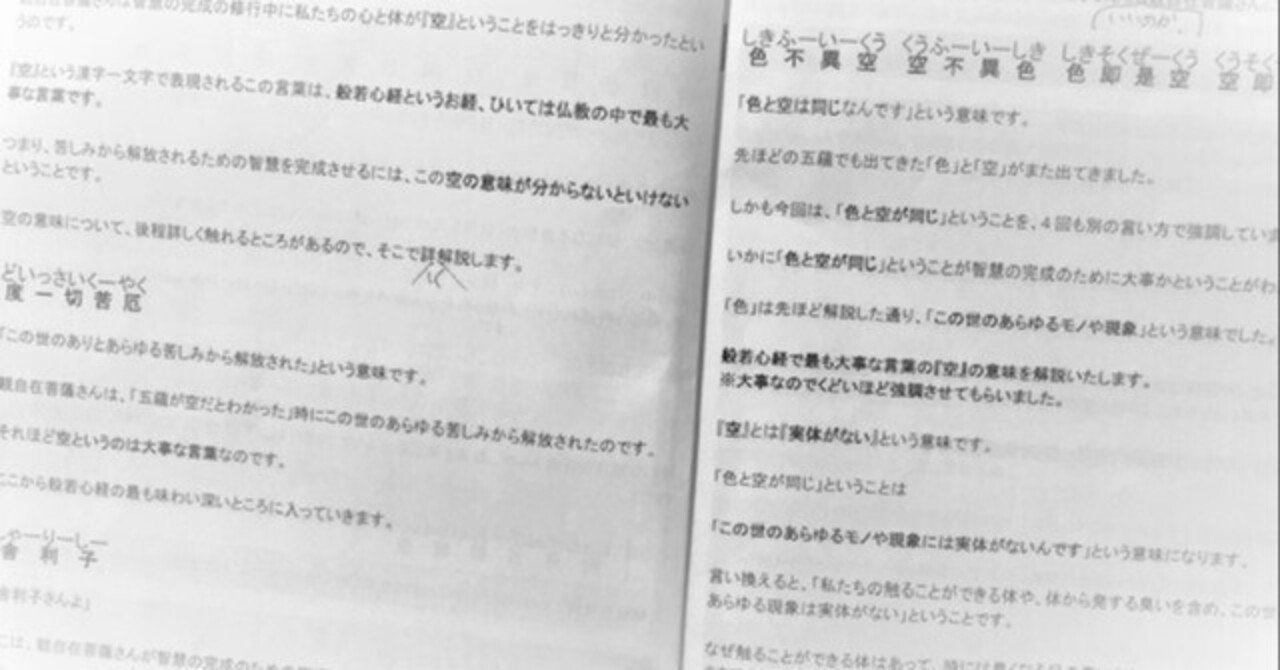 観自在菩薩さんは智慧の完成の修行中に私たちの心と体が『空』ということをはっきりと分かったとい
うのです。
『空』という漢字一文字で表現されるこの言葉は、般若心経というお経、ひいては仏教の中で最も大
事な言葉です。
つまり、苦しみから解放されるための智慧を完成させるには、この空の意味が分からないといけない
ということです。
空の意味について、後程詳しく触れるところがあるので、そこで詳解説します。
しく
どいっさいくーやく
度一切苦厄
「この世のありとあらゆる苦しみから解放された」という意味です。
観自在菩薩さんは、「五蘊が空だとわかった」時にこの世のあらゆる苦しみから解放されたのです。
それほど空というのは大事な言葉なのです。
ここから般若心経の最も味わい深いところに入っていきます。
しゃーりーしー
舎利子
舎利子さんよ」
には、観自在菩薩さんが智慧の完成のための
いいのか
しきふーいーくう くうふーいーしき しきそくぜーくう くうそく
色不異空 空不異色 色即是空 空即
「色と空は同じなんです」という意味です。
先ほどの五蘊でも出てきた「色」と「空」がまた出てきました。
しかも今回は、「色と空が同じ」ということを、4回も別の言い方で強調していま
いかに「色と空が同じ」ということが智慧の完成のために大事かということがわ
「色」は先ほど解説した通り、「この世のあらゆるモノや現象」という意味でした。
般若心経で最も大事な言葉の『空』の意味を解説いたします。
※大事なのでくどいほど強調させてもらいました。
『空』とは『実体がない』という意味です。
「色と空が同じ」ということは
「この世のあらゆるモノや現象には実体がないんです」という意味になります。
言い換えると、「私たちの触ることができる体や、体から発する臭いを含め、この世
あらゆる現象は実体がない」ということです。
なぜ触ることができる体はあって、時には臭く